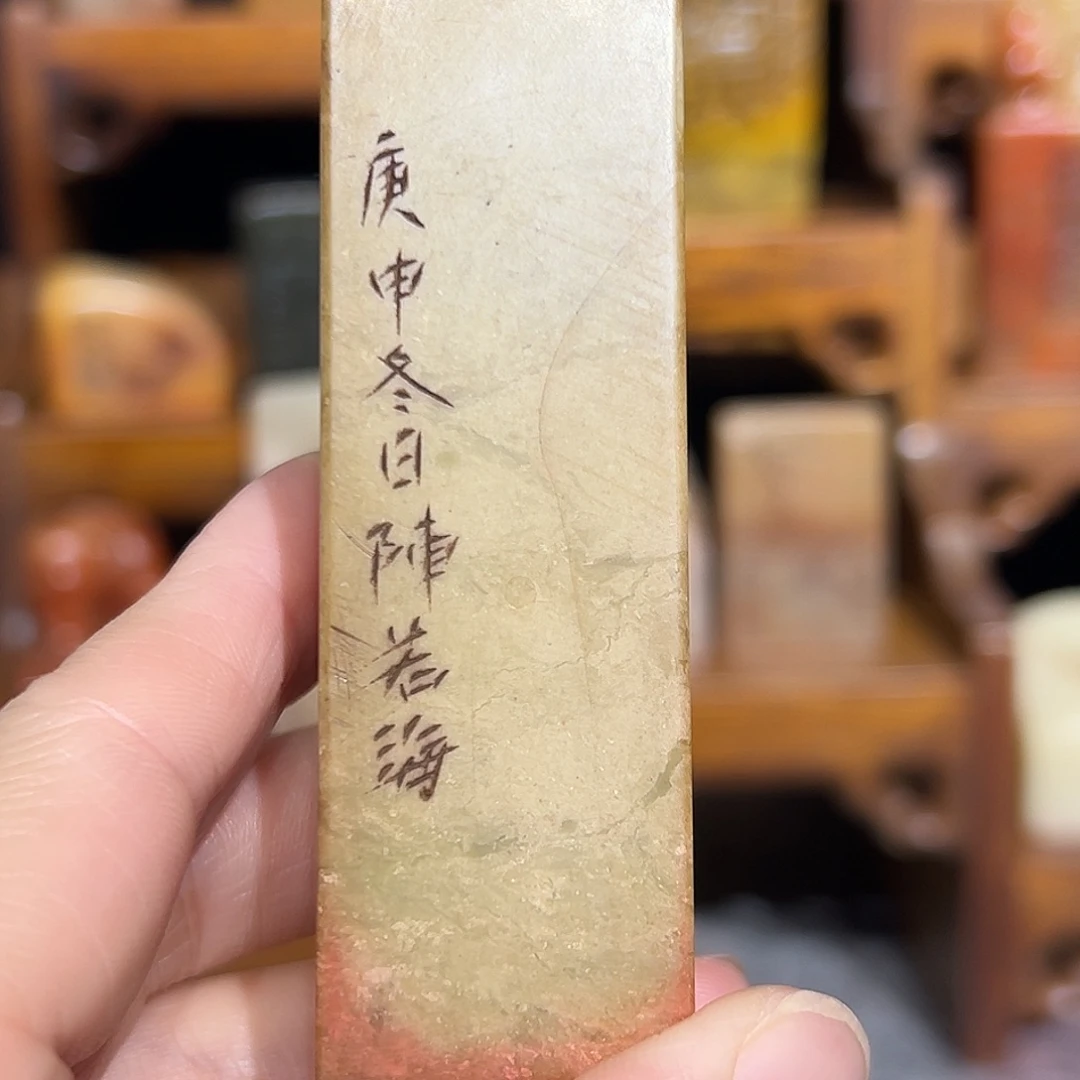 庚申冬日陳若海